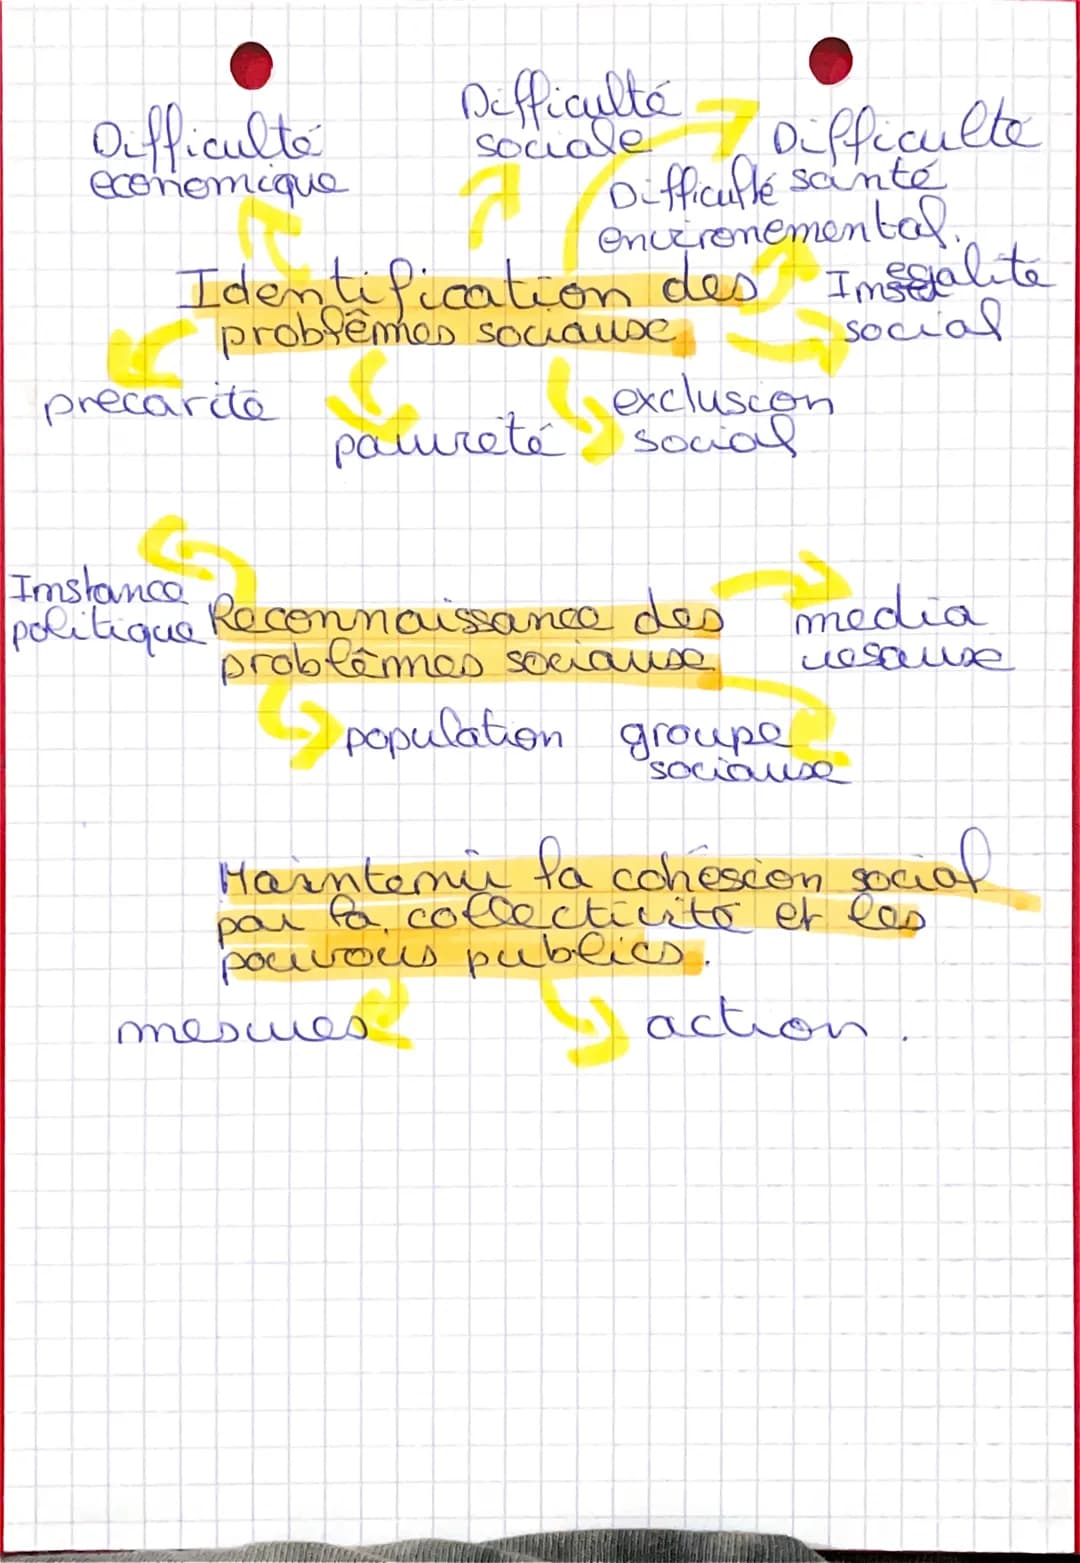 Difficulté
economique
Difficulté
sociale
Difficulte
santé
Difficulté
environemental.
Identification des
problêmes sociause
egalité
social
precarité
pauvreté
exclusion
social
Imstance
politique
Reconnaissance des
problêmes sociause
media
resause
population
groupe
sociause
Maintenir la cohésion social
par la collectivité et les
pouvous publics.
mesures
action.